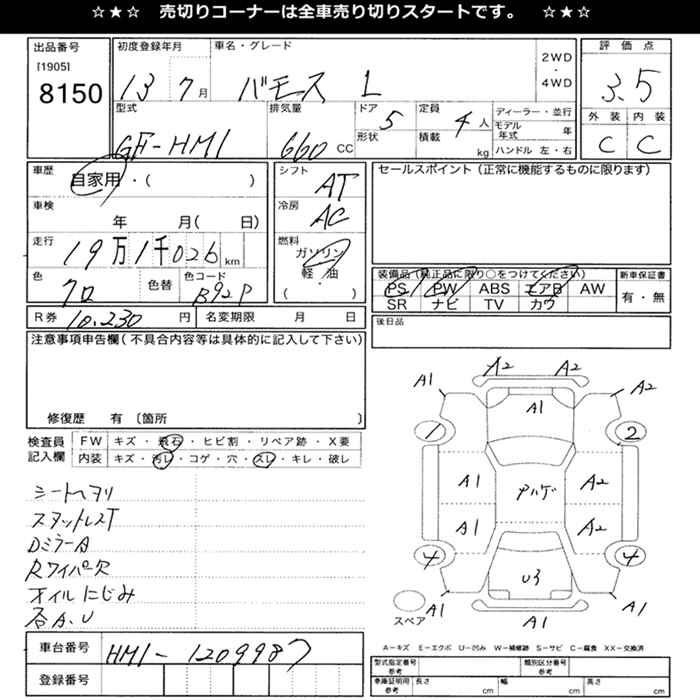 ☆★☆ 売切りコーナーは全車売り切りスタートです。 ☆★☆
出品番号 初度登録年月 車名・グレード 2WD・4WD 評価点
[1905]
8150 13 7月 バモス L 3.5
型式 排気量 ドア形状 5 定員 4人 積載 kg ディーラー・並行 外装 内装
GF-HM1 660 CC モデル年式 年 C C
ハンドル 左・右
車歴 自家用・( ) シフト AT セールスポイント(正常に機能するものに限ります)
車検 年 月( 日) 冷房 AC
走行 19万1千026km 燃料 ガソリン 軽・油 ( )
装備品(純正品に限り○をつけてください) 新車保証書
色 クロ 色替 色コード B92P PS PW ABS エアB AW 有・無
SR ナビ TV カワ
R券 10,230円 名変期限 月 日 後日品
注意事項申告欄(不具合内容等は具体的に記入して下さい)
修復歴 有 〔箇所 〕
検査員記入欄 FW キズ・飛石・ヒビ割・リペア跡・X要
内装 キズ・汚レ・コゲ・穴・スレ・キレ・破レ
シートヘタリ
スタットレスT
DミラーA
Rワイパー欠
オイルにじみ
各A.U
A1 A2 A2 A2
A1
1 2
A1 アハゲ A2
A1 A2
4 4
U3
スペア A1 A1 A1
A-キズ E-エクボ U-凹み W-補修跡 S-サビ C-腐食 XX-交換済
車台番号 HM1-1209987
登録番号
型式指定番号 参考 類別区分番号 参考
車庫証明用 参考 長さ cm 幅 cm 高さ cm